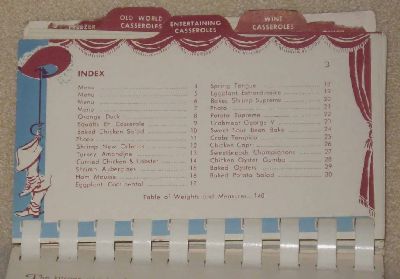 FREEZER
OLD WORLD
CASSEROLES
ENTERTAINING
CASSEROLES
WINE
CASSEROLES
3
INDEX
Menu 4
Menu 5
Menu 6
Menu 7
Orange Duck 8
Squabs En Casserole 9
Baked Chicken Salad 10
Photo 11
Shrimp New Orleans 12
Turkey Amandine 13
Curried Chicken & Lobster 14
Shrimp Aubergines 15
Ham Mousse 16
Eggplant Continental 17
Spring Tongue 18
Eggplant Extraordinaire 19
Baked Shrimp Supreme 20
Photo 21
Potato Supreme 22
Crabmeat George V 23
Sweet Sour Bean Bake 24
Crabs Tampico 25
Chicken Capri 26
Sweetbreads Championons 27
Chicken Oyster Gumbo 28
Baked Oysters 29
Baked Potato Salad 30
Table of Weights and Measures 160